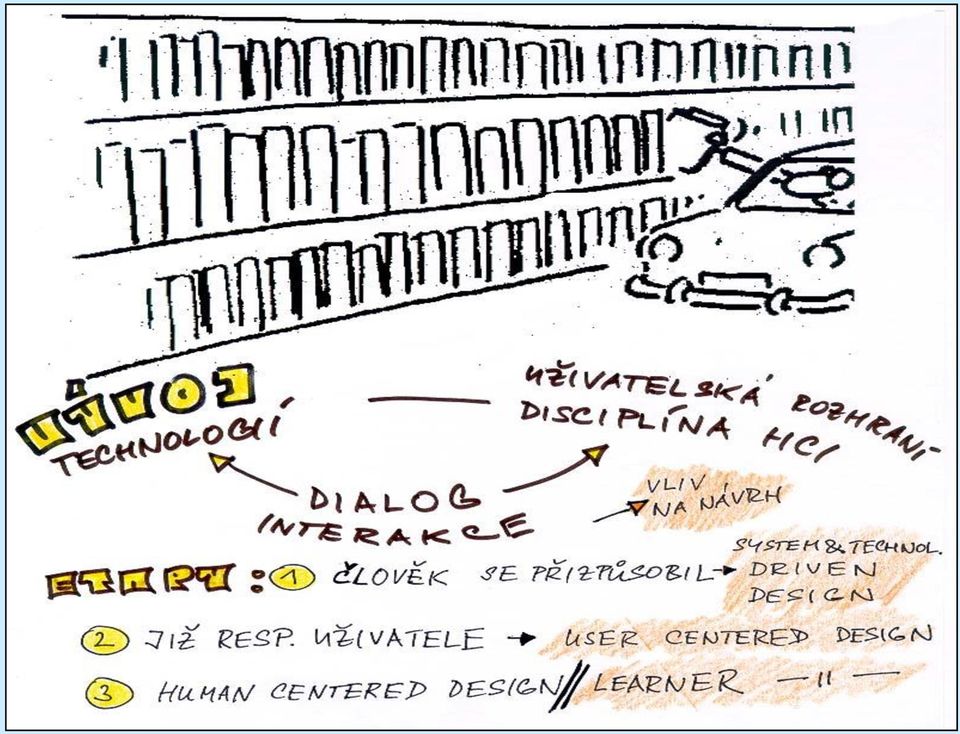 VÝVOJ
TECHNOLOGIÍ
UŽIVATELSKÁ ROZHRANÍ
DISCIPLÍNA HCI
DIALOG
INTERAKCE
VLIV
NA NÁVRH
ETAPY: 1 ČLOVĚK SE PŘIZPŮSOBIL → SYSTEM & TECHNOL.
DRIVEN
DESIGN
2 JIŽ RESP. UŽIVATELE → USER CENTERED DESIGN
3 HUMAN CENTERED DESIGN // LEARNER — 11 —